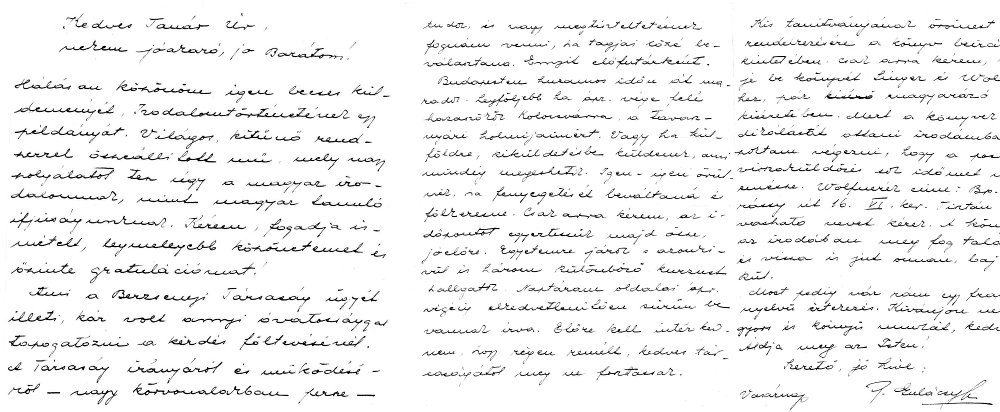 Kedves Tanár Úr,
nekem jóakaró, jó Barátom!
Hálásan köszönöm igen becses kül-
deményét, Irodalomtörténetének egy
példányát. Világos, kitünő rend-
szerrel összeállított mű, mely nagy
szolgálatot tesz úgy a magyar iro-
dalomnak, mint magyar tanuló
ifjúságunknak. Kérem, fogadja is-
mételt, legmelegebb köszönetemet és
őszinte gratulációmat!
Ami a Berzsenyi Társaság ügyét
illeti, kár volt annyi óvatossággal
tapogatózni a kérdés föltevésénél.
A Társaság irányáról és működésé-
ről — nagy körvonalakban persze —
tudok, és nagy megtiszteltetésnek
fognám venni, ha tagjai közé be-
választana. Ennyit előfutárként.
Budapesten huzamos időn át ma-
radok. Legföljebb ha ápr. vége felé
hazanézek Kolozsvárra, a tavasz-
nyári holmijaimért. Vagy ha kül-
földre, kiküldetésbe küldenek, ami
mindig megeshetik. Igen-igen örül-
nék, ha fenyegetését beváltaná és
fölkeresne. Csak arra kérem, az i-
dőpontot egyeztessük majd össze,
jóelőre. Egyetemre járok s azonkí-
vül is három különböző kurzust
hallgatok. Naptáram oldalai ápr.
végéig elkedvetlenítően sürün be
vannak írva. Előre kell intézked-
nem, hogy régen remélt, kedves tár-
saságától meg ne fosszam.
Kis tanítványának örömest
rendelkezésére a könyv beírá
kintetében. Csak arra kérem,
je be könyvét Singer és Wol
hez, pár magyarázó
kíséretében. Mert a könyvek
dikálását ottani irodámba
szoktam végezni, hogy a pos
visszaküldözés sok időmet
emésze. Wolfnerék címe: Bp.
rássy út 16. VI. ker. Tisztán
vasható nevet kérek. A kön
az irodában meg fog talá
és vissza is jut onnan, baj
kül.
Most pedig vár rám egy fra
nyelvű értekezés. Kívánjon ne
gyors és könnyű munkát, kedv
Áldja meg az Isten!
Szerető, jó híve:
Vasárnap
P. Gulácsy I.